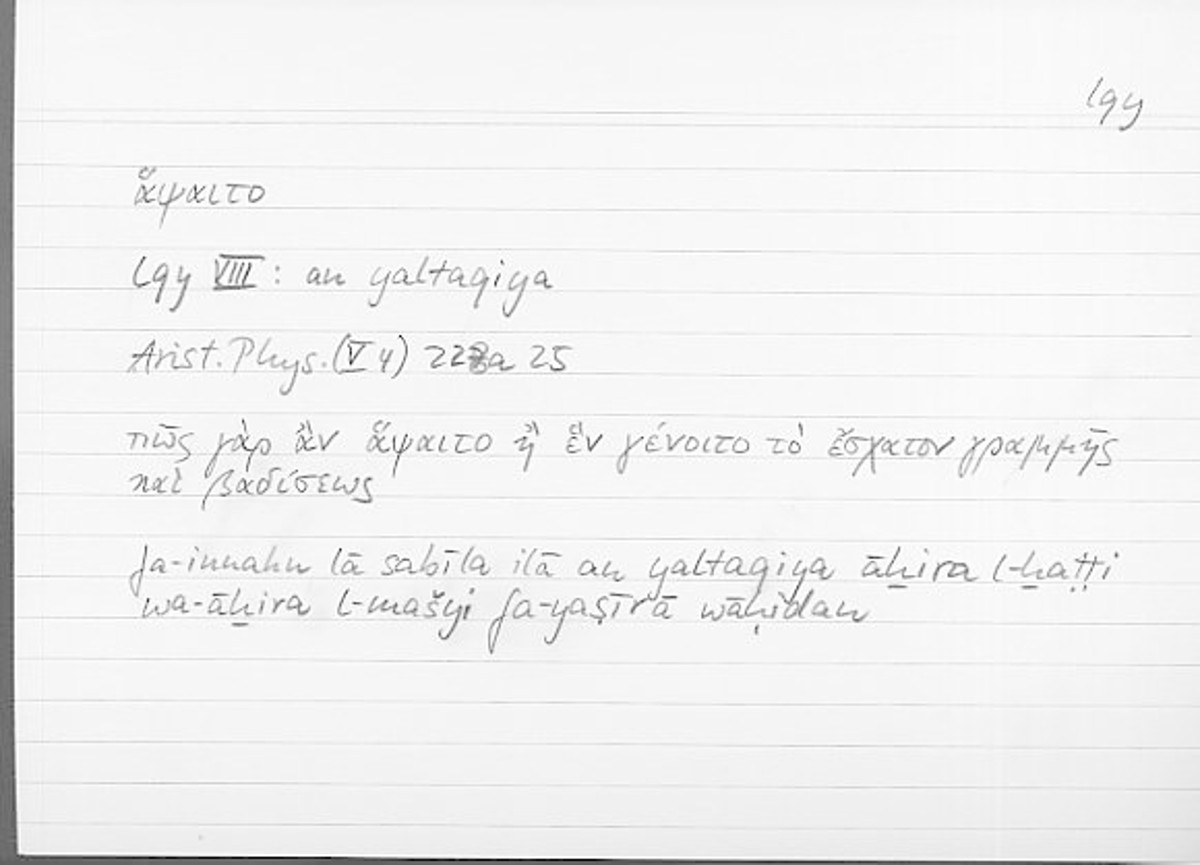 lqy
ἅψαιτο
lqy VIII : an yaltaqiya
Arist. Phys. (V 4) 228a 25
πῶς γὰρ ἂν ἅψαιτο ἢ ἓν γένοιτο τὸ ἔσχατον γραμμῆς
καὶ βαδίσεως
fa-innahu lā sabīla ilā an yaltaqiya āḫira l-ḫaṭṭi
wa-āḫira l-mašyi fa-yaṣīrā wāḥidan